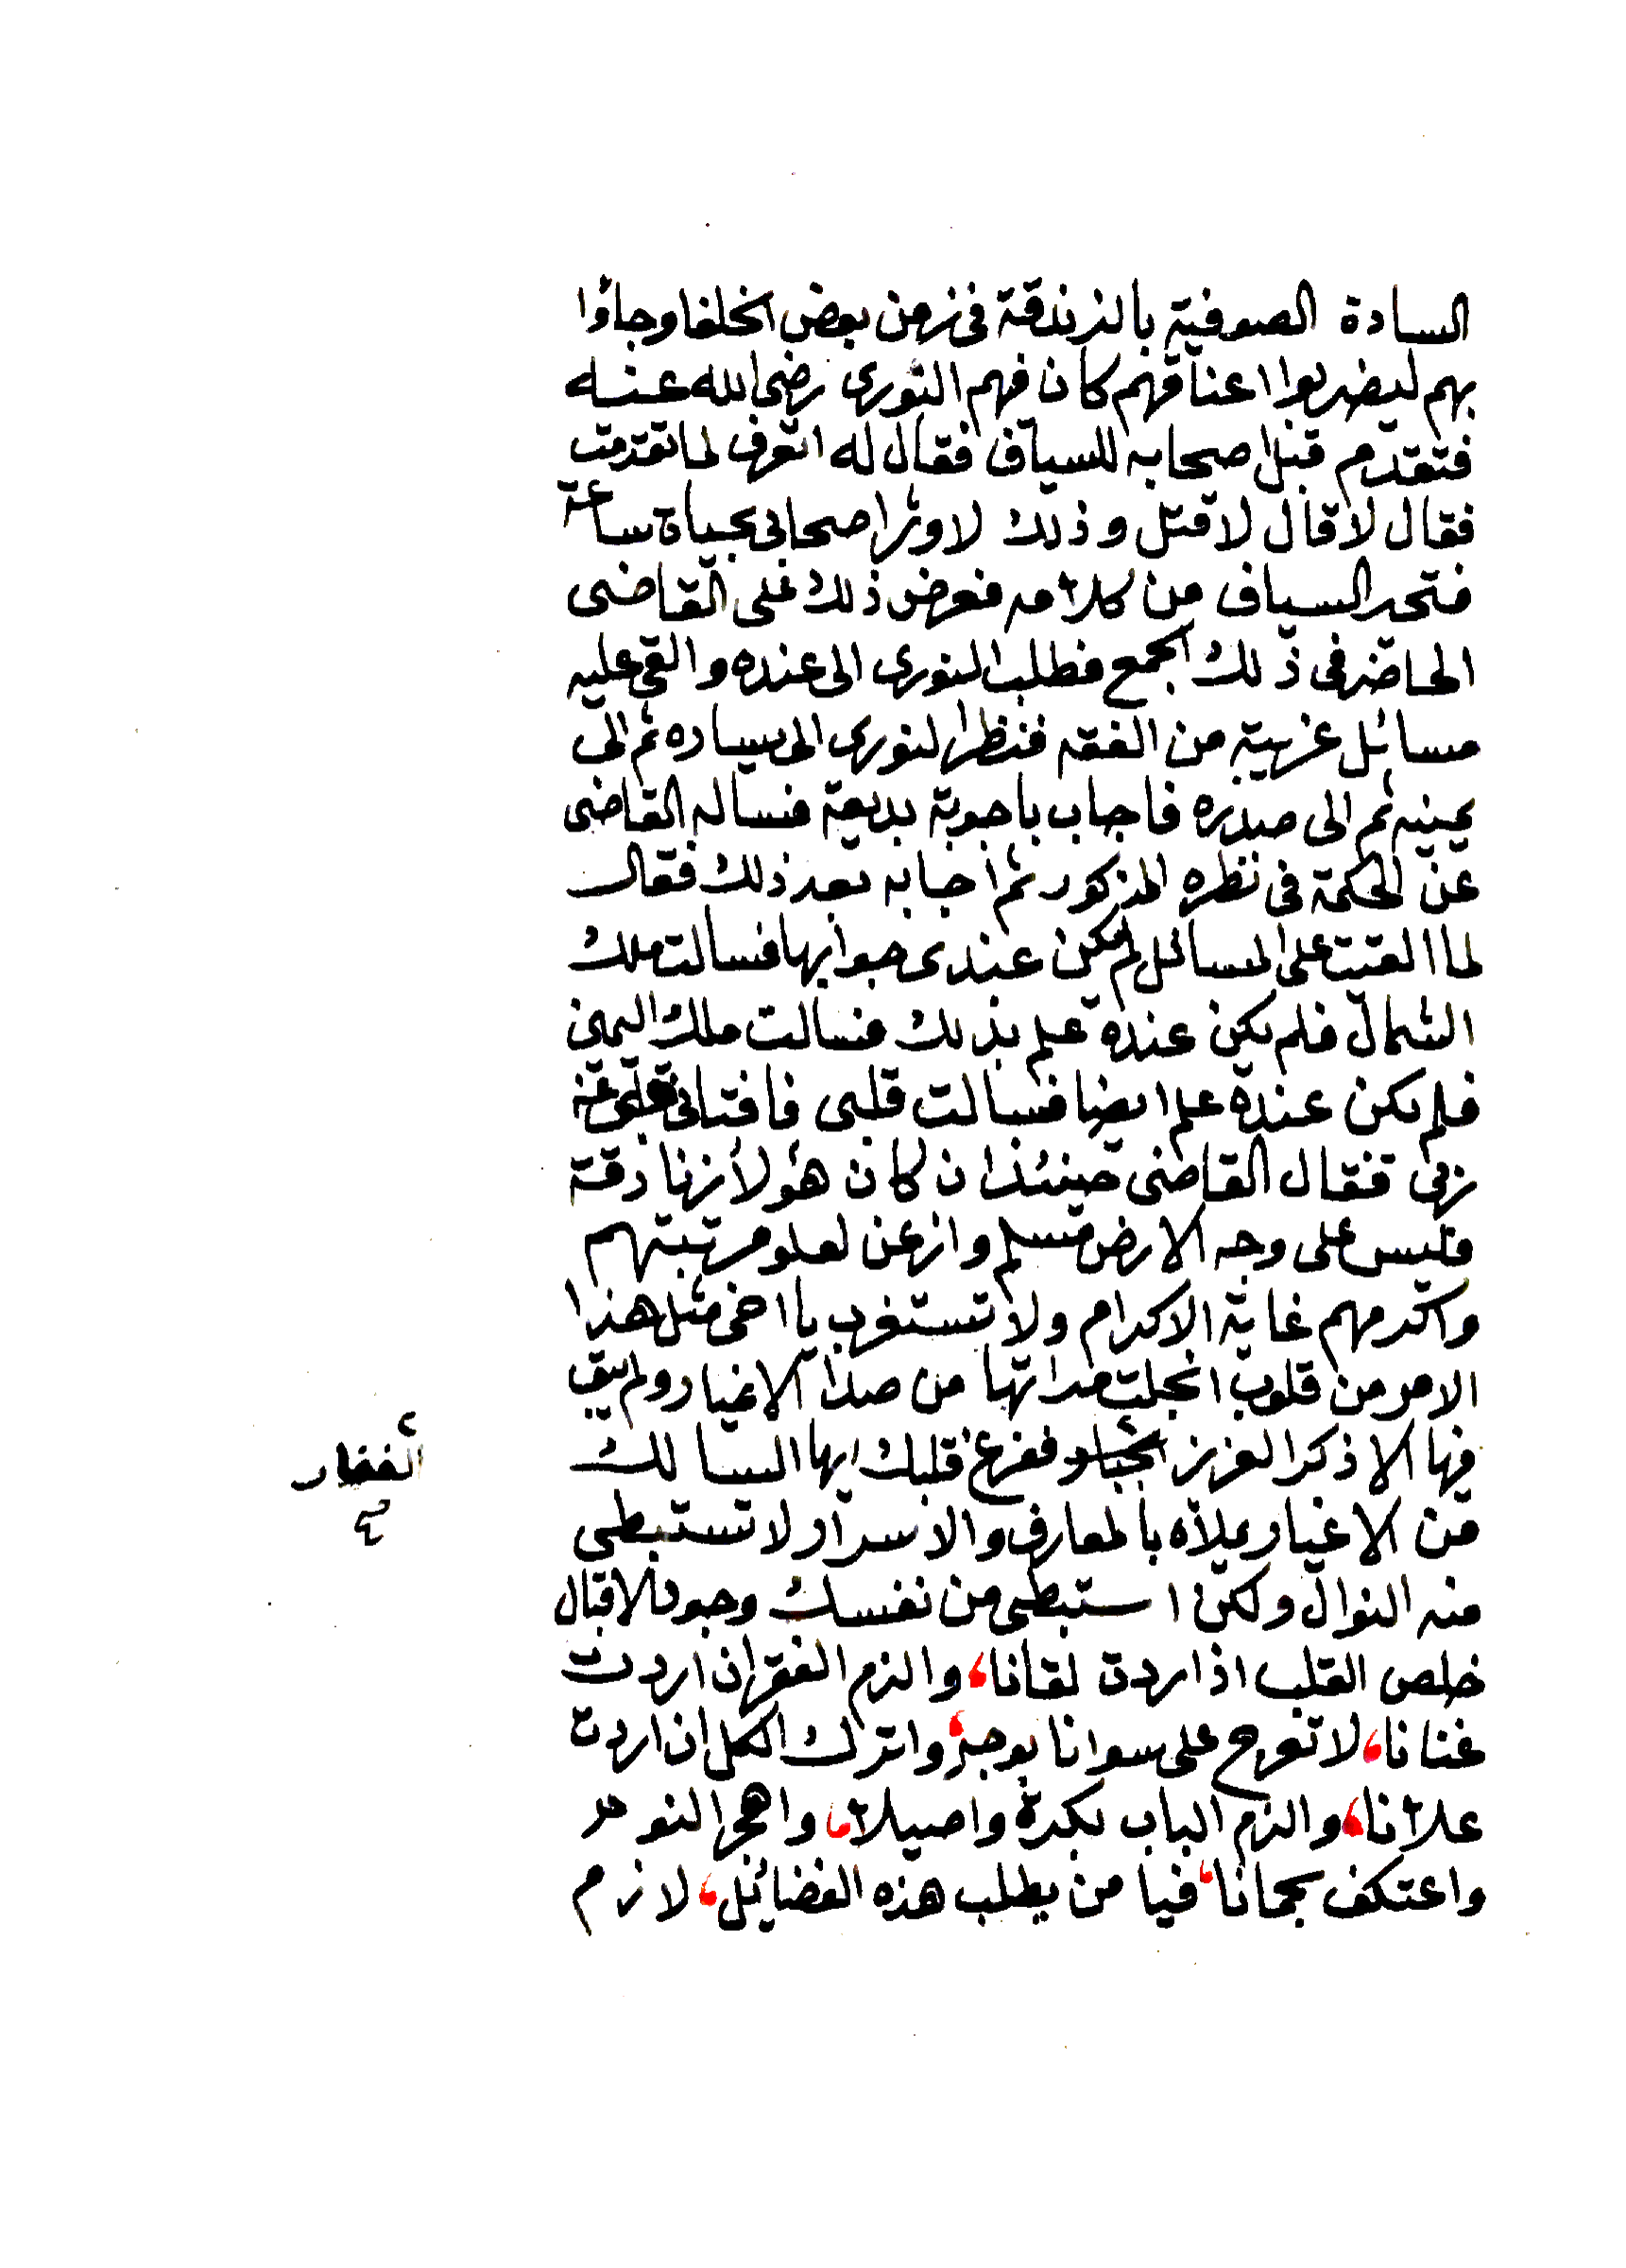 السادة الصوفية بالزندقة فى زمن بعض الخلفا وجاؤا
بهم ليضربوا اعناقهم كان فيهم النورى رضى الله عنه
فتقدم قبل اصحابه للسياف فقال له اتعرف لما تقدمت
فقال لا قال لاقتل وذلك لاوثر اصحابى بحياة ساعة
فتحير السياف من كلامه فعرض ذلك على القاضى
الحاضر فى ذلك الجمع فطلب النورى الى عنده والقى عليه
مسائل غريبة من الفقه فنظر النورى الى يساره ثم الى
يمينه ثم الى صدره فاجاب باجوبة بديعة فساله القاضى
عن الحكمة فى نظره المذكور ثم اجابه بعد ذلك فقال
لما القيت على المسائل لم يكن عندى جوابها فسالت ملك
الشمال فلم يكن عنده علم بذلك فسالت ملك اليمين
فلم يكن عنده علم ايضا فسالت قلبى فافتانى قلبى عن
ربى فقال القاضى حينئذ ان كان هؤلأ زنادقة
فليس على وجه الارض مسلم واذعن لعلو مرتبتهم
واكرمهم غاية الاكرام ولا تستغرب يا اخى مثل هذا
الامر من قلوب انجلت مراتها من صدا الاغيار ولم يبق
فيها الا ذكر العزيز الجبار ففرغ قلبك ايها السالك
من الاغيار يملاه بالمعارف والاسرار لا تستبطى
منه النوال ولكن استبطى من نفسك وجود الاقبال
خلص القلب اذا اردت لقانا، والزم الفقر ان اردت
غنانا، لا تعرج على سوانا بوجه، واترك الكل ان اردت
علانا، والزم الباب بكرة واصيلا، واهجر النوم
واعتكف بحمانا، فيا من يطلب هذه الفضائل، لازم
الغفار